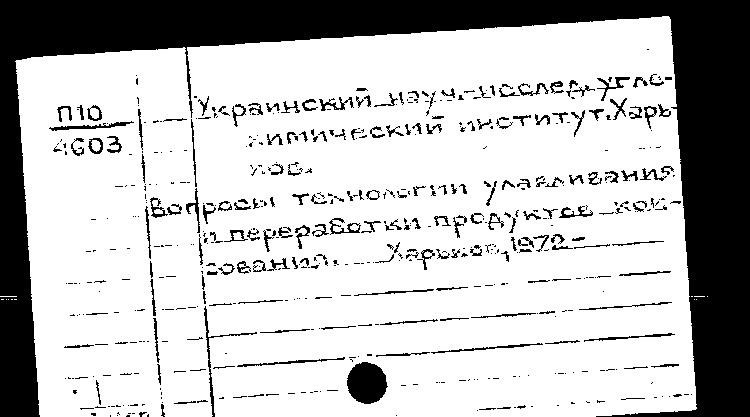 П10
4603
Украинский науч.-исслед. угле-
химический институт. Харь-
ков.
Вопросы технологии улавливания
и переработки продуктов кок-
сования. Харьков, 1972-